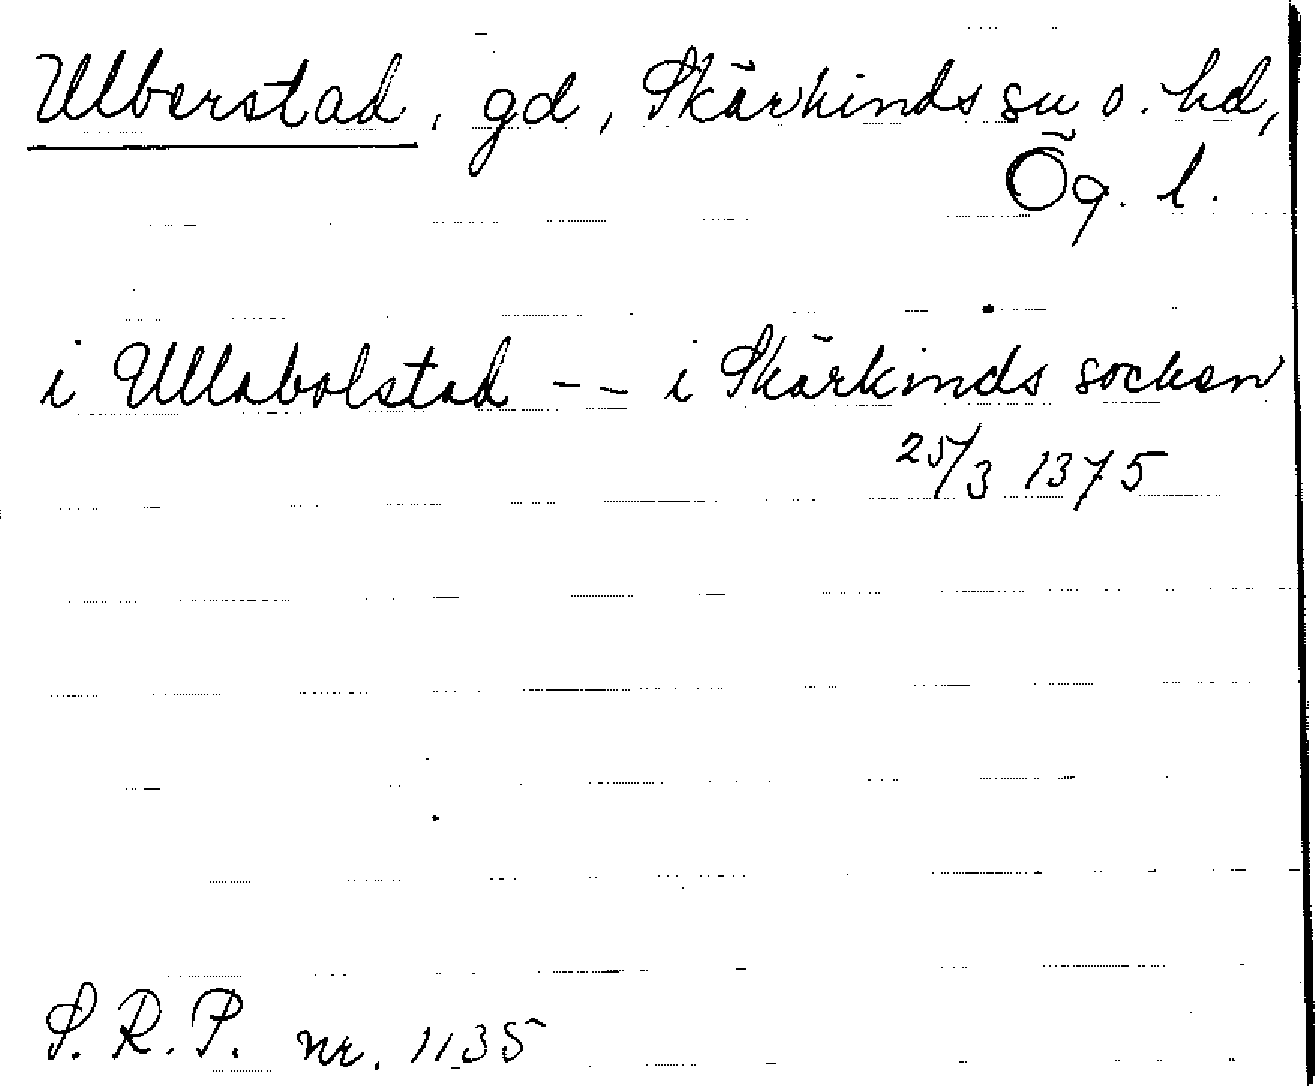 Ulberstad, gd, Skärkinds sn o. hd,
Ög. l.
i Ullabolstad -- i Skärkinds socken
25/3 1375
S.R.P. nr. 1135